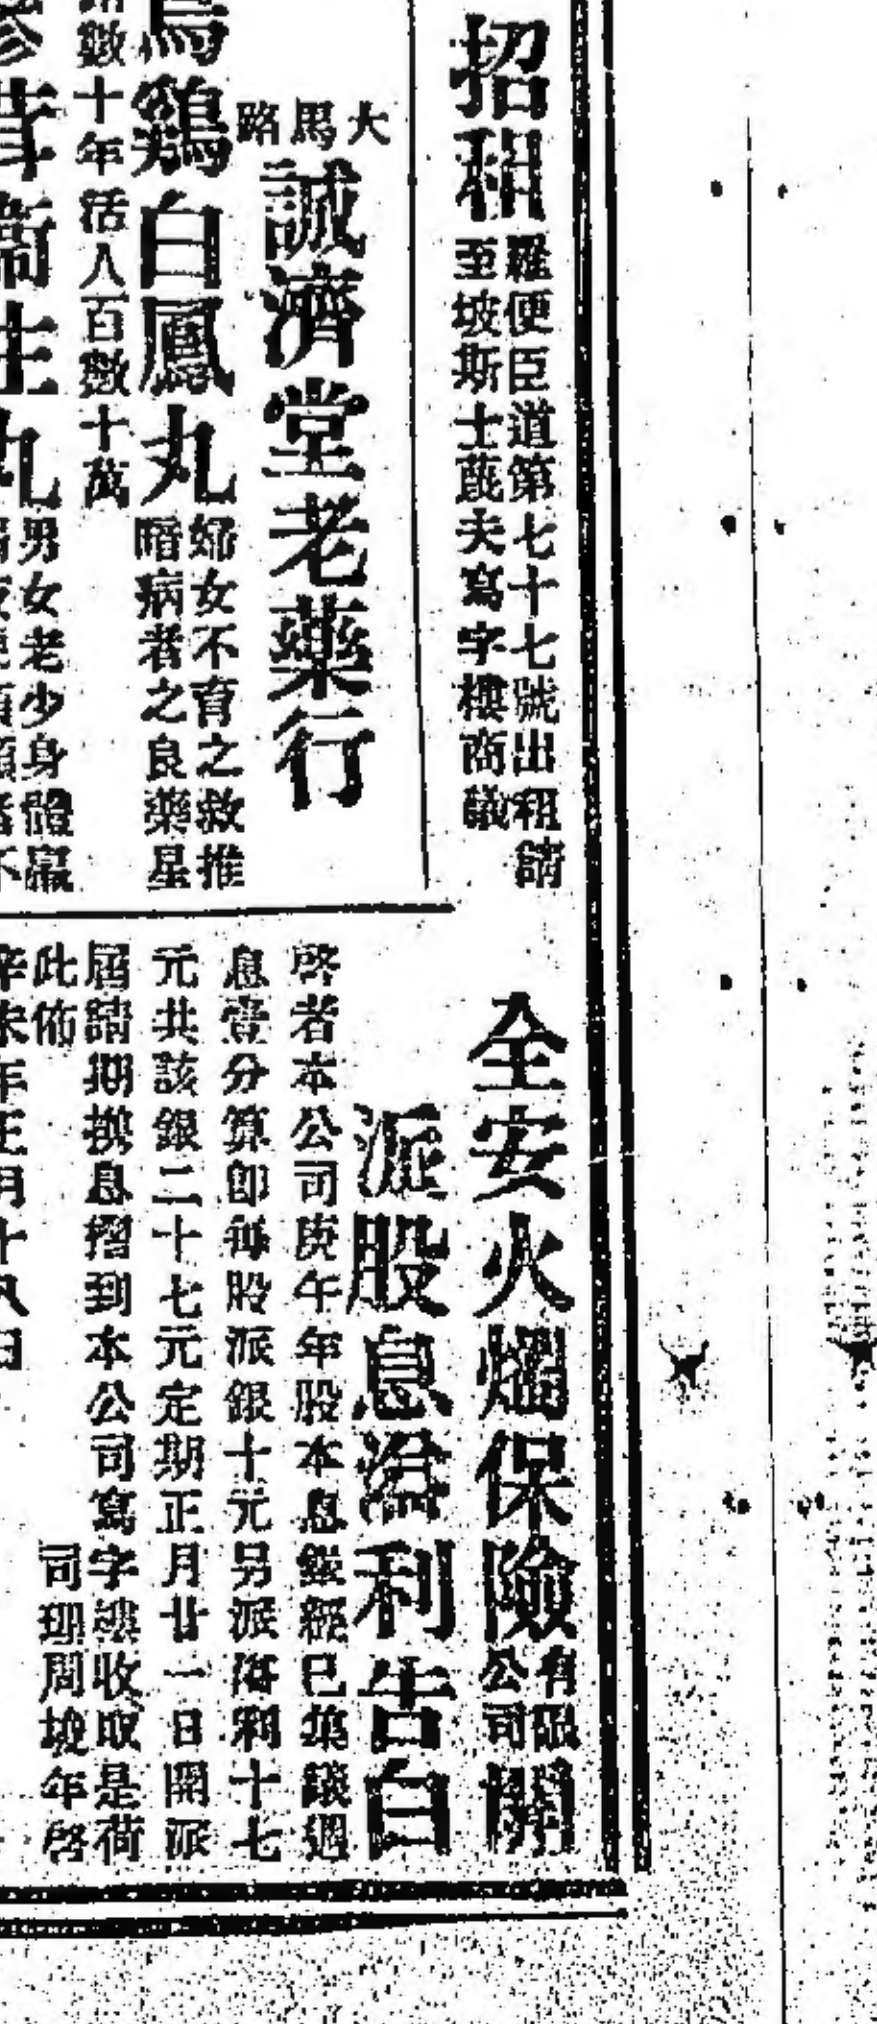 招租
羅便臣道第七十七號出租請
至坡斯士蔑夫寫字樓商議
大馬路
誠濟堂老藥行
烏鷄白鳳丸
婦女不育之救推
暗病者之良藥星
數十年活人百數十萬
參茸衞生丸
男女老少身體羸
全安火燭保險
有限
公司
開
派股息溢利告白
啓者本公司庚午年股本息銀經已集議週
息壹分算即每股派銀十元另派溢利十七
元共該銀二十七元定期正月廿一日開派
屆請期携息摺到本公司寫字樓收取是荷
此佈
司理周竣年啓
辛未年正月十八日